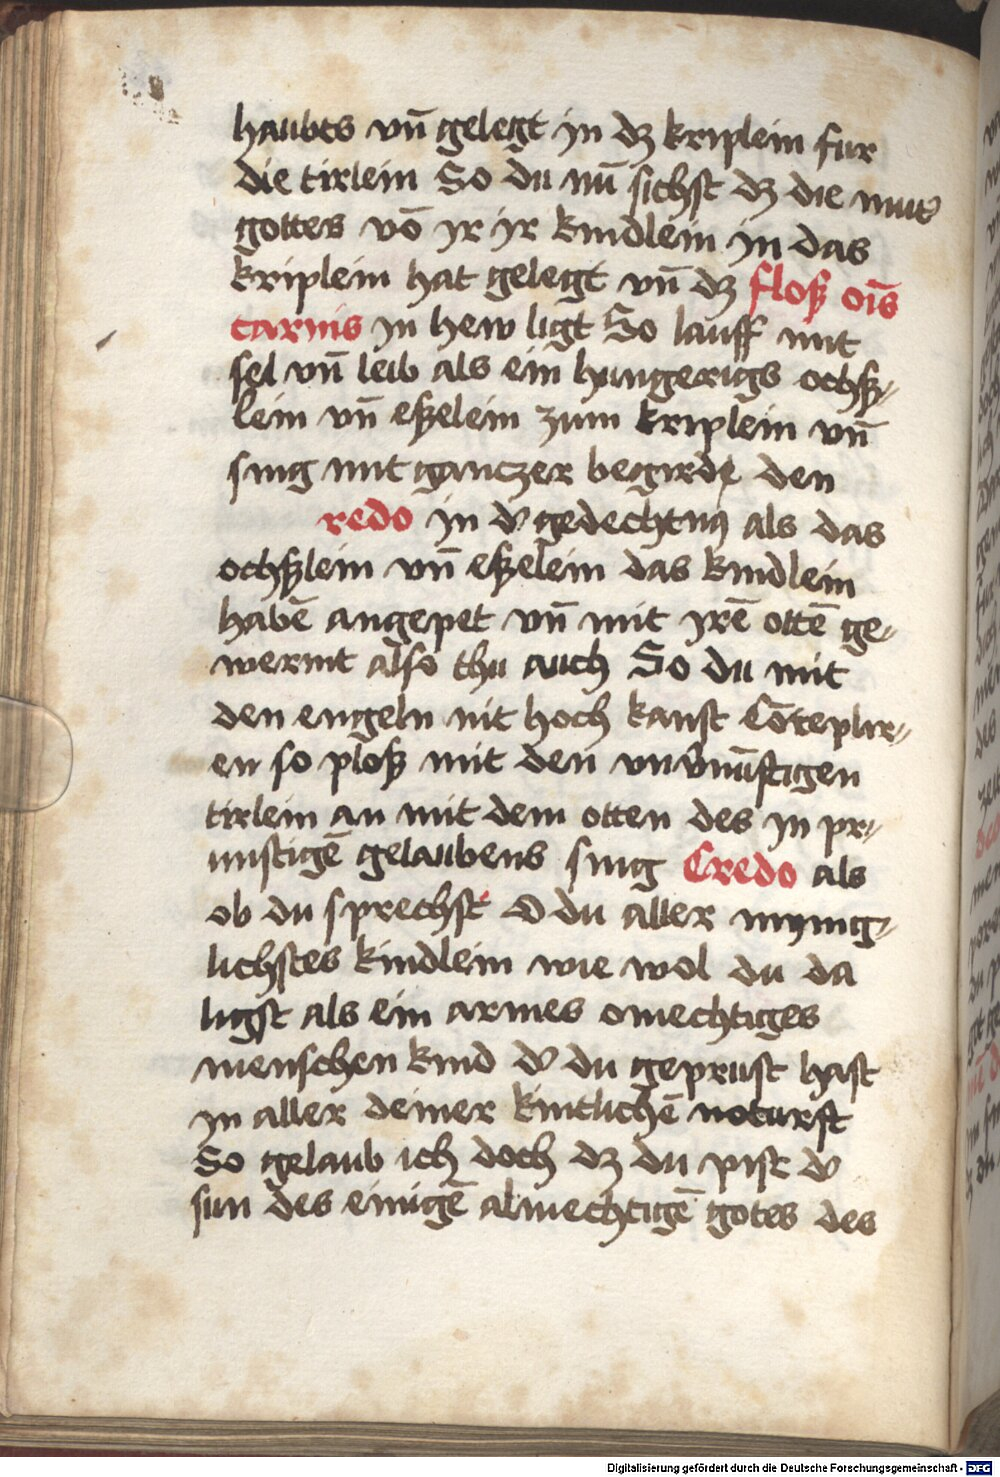 haubts vn̄ gelegt jn dz kriplein fur
die tirlein So du nū sichst dz die mut͛
gottes vō yr yr kindlein jn das
kriplein hat gelegt vn̄ dz floß oīs
carnis jn hew ligt So lauff mit
sel vn̄ leib als ein hungerigs ochß⸗
lein vn̄ eßelein zum kriplein vn̄
sing mit ganczer begirde den
redo jn d͛ gedechtnꝰ als das
ochßlein vn̄ eßelein das kindlein
habē angepet vn̄ mit yrē ottē ge⸗
wermt also thu auch So du mit
den engeln nit hoch kanst Cōteplir⸗
en so ploß mit den vnv͛nūftigen
tirlein an mit dem otten des jn pr⸗
unstigē gelaubens sing Credo als
ob du sprechst O du aller mynig⸗
lichstes kindlein wie wol du da
ligst als ein armes omechtiges
menschen kind d͛ du geprust hast
jn aller deiner kintlichē noturft
So gelaub ich doch dz du pist d͛
sun des einigē almechtigē gotes des
Digitalisierung gefördert durch die Deutsche Forschungsgemeinschaft - DFG